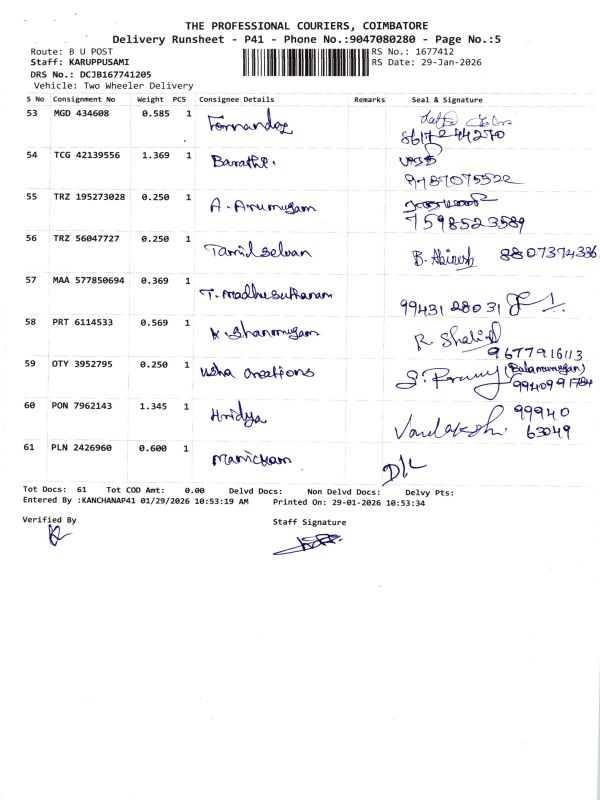 THE PROFESSIONAL COURIERS, COIMBATORE
Delivery Runsheet - P41 - Phone No.:9047080280 - Page No.:5
Route: B U POST RS No.: 1677412
Staff: KARUPPUSAMI RS Date: 29-Jan-2026
DRS No.: DCJB167741205
Vehicle: Two Wheeler Delivery
S No Consignment No Weight PCS Consignee Details Remarks Seal & Signature
53 MGD 434608 0.585 1 Fernandez
8617244270
54 TCG 42139556 1.369 1 Barathi.
9787075522
55 TRZ 195273028 0.250 1 A. Arumugam
7598523589
56 TRZ 56047727 0.250 1 Tamilselvan B. Abinesh 8807374336
57 MAA 577850694 0.369 1 T. Madhusuthanam
99431 28031
58 PRT 6114533 0.569 1 K. Shanmugam R. Shalini
9677916113
59 OTY 3952795 0.250 1 Usha Creations (Balamurugan)
9940991784
60 PON 7962143 1.345 1 Hridya 99940
63049
61 PLN 2426960 0.600 1 Manickam D/L
Tot Docs: 61 Tot COD Amt: 0.00 Delvd Docs: Non Delvd Docs: Delvy Pts:
Entered By :KANCHANAP41 01/29/2026 10:53:19 AM Printed On: 29-01-2026 10:53:34
Verified By Staff Signature